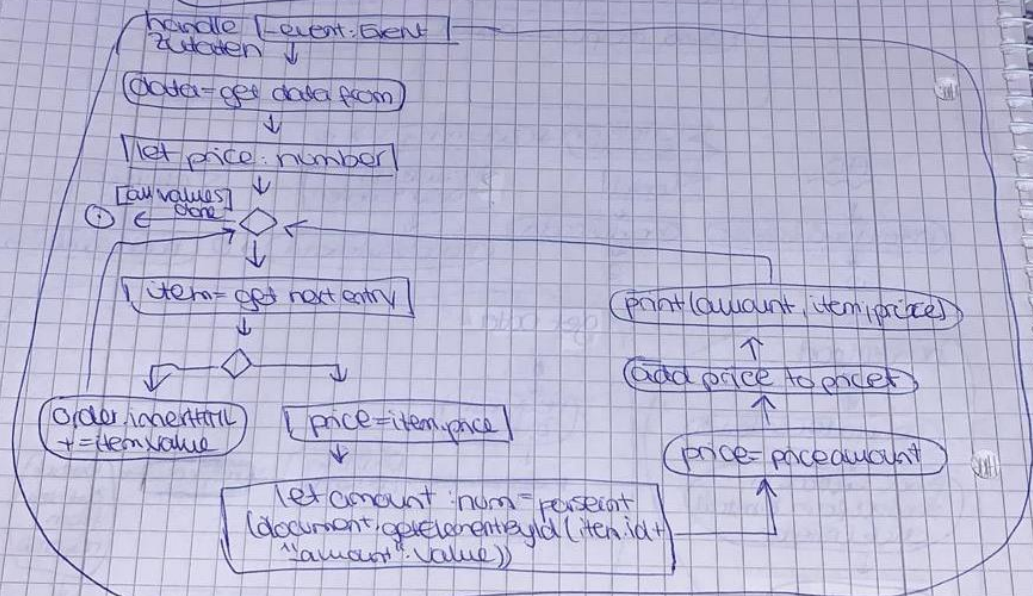 handle
Zutaten
_event: Event
data=get data from
let price: number
[all values]
done
1
item= get next entry
order.innerHTML
+=item.value
price=item.price
let amount :num=parseint
(document.getElementById(item.id+
"amount".value))
price= price amount
add price to pricet
print(amount, item, price)